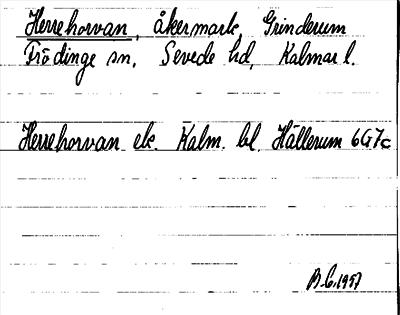 Herrehorvan, åkermark, Grinderum
Frödinge sn, Sevede hd, Kalmar l.
Herrehorvan ek. Kalm. bl. Hällerum 6G7c
B.G. 1957